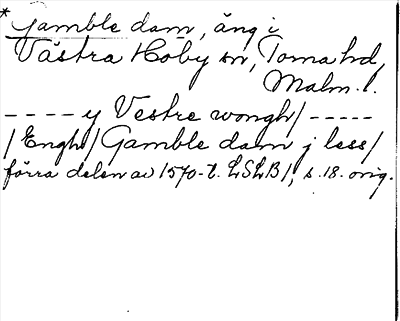 * Gamble dam, äng i
Västra Hoby sn, Torna hd,
Malm. l.
---- y Vestre wongh/ -----
/Engh/ Gamble dam j less/
förra delen av 1570-t. LSLB/, s. 18. orig.